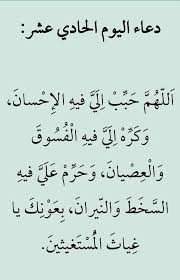 دعاء اليوم الحادي عشر:
اَللّهُمَّ حَبِّبْ اِلَيَّ فيهِ الاِحْسانَ،
وَكَرِّهْ اِلَيَّ فيهِ الْفُسُوقَ
وَالْعِصْيانَ، وَحَرِّمْ عَلَيَّ فيهِ
السَّخَطَ وَالنّيرانَ، بِعَوْنِكَ يا
غِياثَ الْمُسْتَغيثينَ.